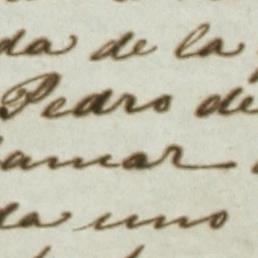 da de la
Pedro de
lamar
da uno